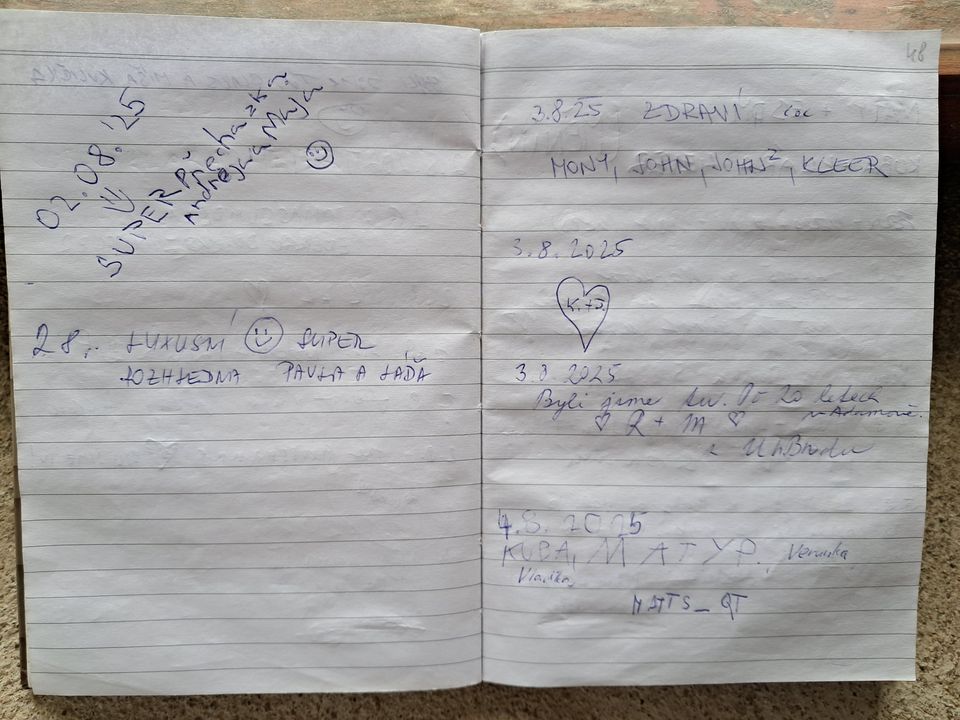 02.08.'25
SUPER
Procházka
Andrejka a Mája
28.. LUXUSNÍ SUPER
ROZHLEDNA PAVLA A LÁĎA
48
3.8.25 ZDRAVÍ
MONY, JOHN, JOHN², KLEER
3.8.2025
K.+J.
3.8 2025
Byli jsme tu. Po 20 letech
v Adamově.
R + M
z Uh. Brodu
4.8.2025
KUBA, MATYP., Verunka,
MATTS_QT